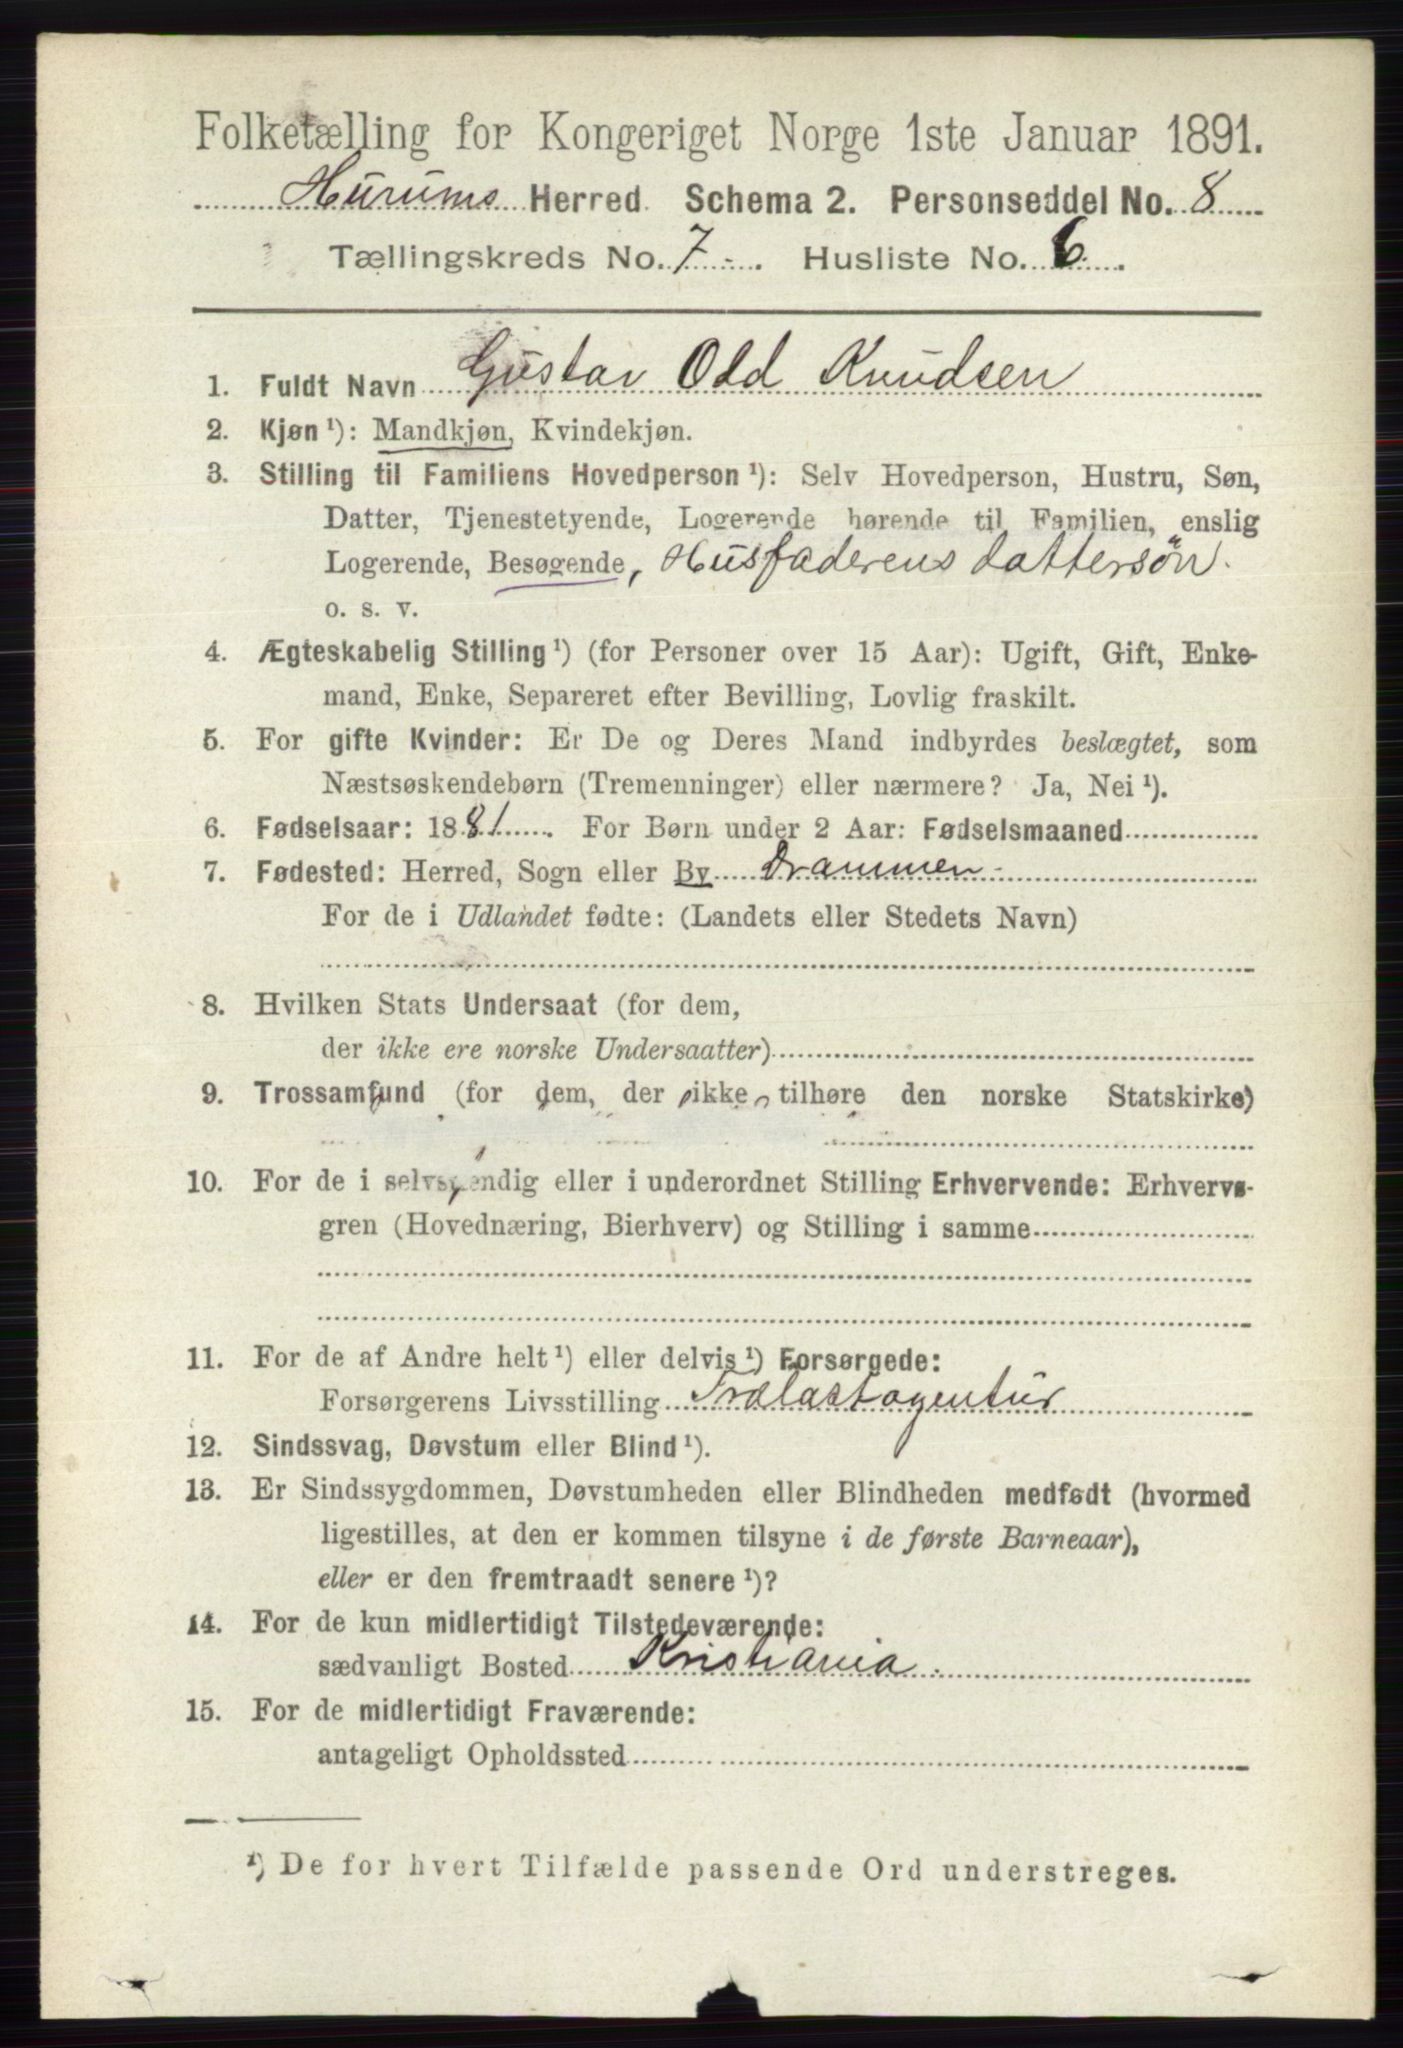 Folketælling for Kongeriget Norge 1ste Januar 1891.
Hurums Herred. Schema 2. Personseddel No. 8
Tællingskreds No. 7. Husliste No. 6.
1. Fuldt Navn Gustav Odd Knudsen
2. Kjøn ¹): Mandkjøn, Kvindekjøn.
3. Stilling til Familiens Hovedperson ¹): Selv Hovedperson, Hustru, Søn,
Datter, Tjenestetyende, Logerende hørende til Familien, enslig
Logerende, Besøgende, Husfaderens dattersön.
o. s. v.
4. Ægteskabelig Stilling ¹) (for Personer over 15 Aar): Ugift, Gift, Enke-
mand, Enke, Separeret efter Bevilling, Lovlig fraskilt.
5. For gifte Kvinder: Er De og Deres Mand indbyrdes beslægtet, som
Næstsøskendebørn (Tremenninger) eller nærmere? Ja, Nei ¹).
6. Fødselsaar: 1881. For Børn under 2 Aar: Fødselsmaaned
7. Fødested: Herred, Sogn eller By Drammen
For de i Udlandet fødte: (Landets eller Stedets Navn)
8. Hvilken Stats Undersaat (for dem,
der ikke ere norske Undersaatter)
9. Trossamfund (for dem, der ikke tilhøre den norske Statskirke)
10. For de i selvstændig eller i underordnet Stilling Erhvervende: Erhvervs-
gren (Hovednæring, Bierhverv) og Stilling i samme
11. For de af Andre helt ¹) eller delvis ¹) Forsørgede:
Forsørgerens Livsstilling Trælastagentur
12. Sindssvag, Døvstum eller Blind ¹).
13. Er Sindssygdommen, Døvstumheden eller Blindheden medfødt (hvormed
ligestilles, at den er kommen tilsyne i de første Barneaar),
eller er den fremtraadt senere ¹)?
14. For de kun midlertidigt Tilstedeværende:
sædvanligt Bosted Kristiania.
15. For de midlertidigt Fraværende:
antageligt Opholdssted
¹) De for hvert Tilfælde passende Ord understreges.